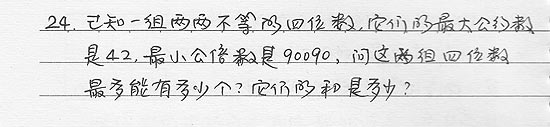 24. 已知一组两两不等的四位数，它们的最大公约数
是42，最小公倍数是90090，问这两组四位数
最多能有多少个？它们的和是多少？